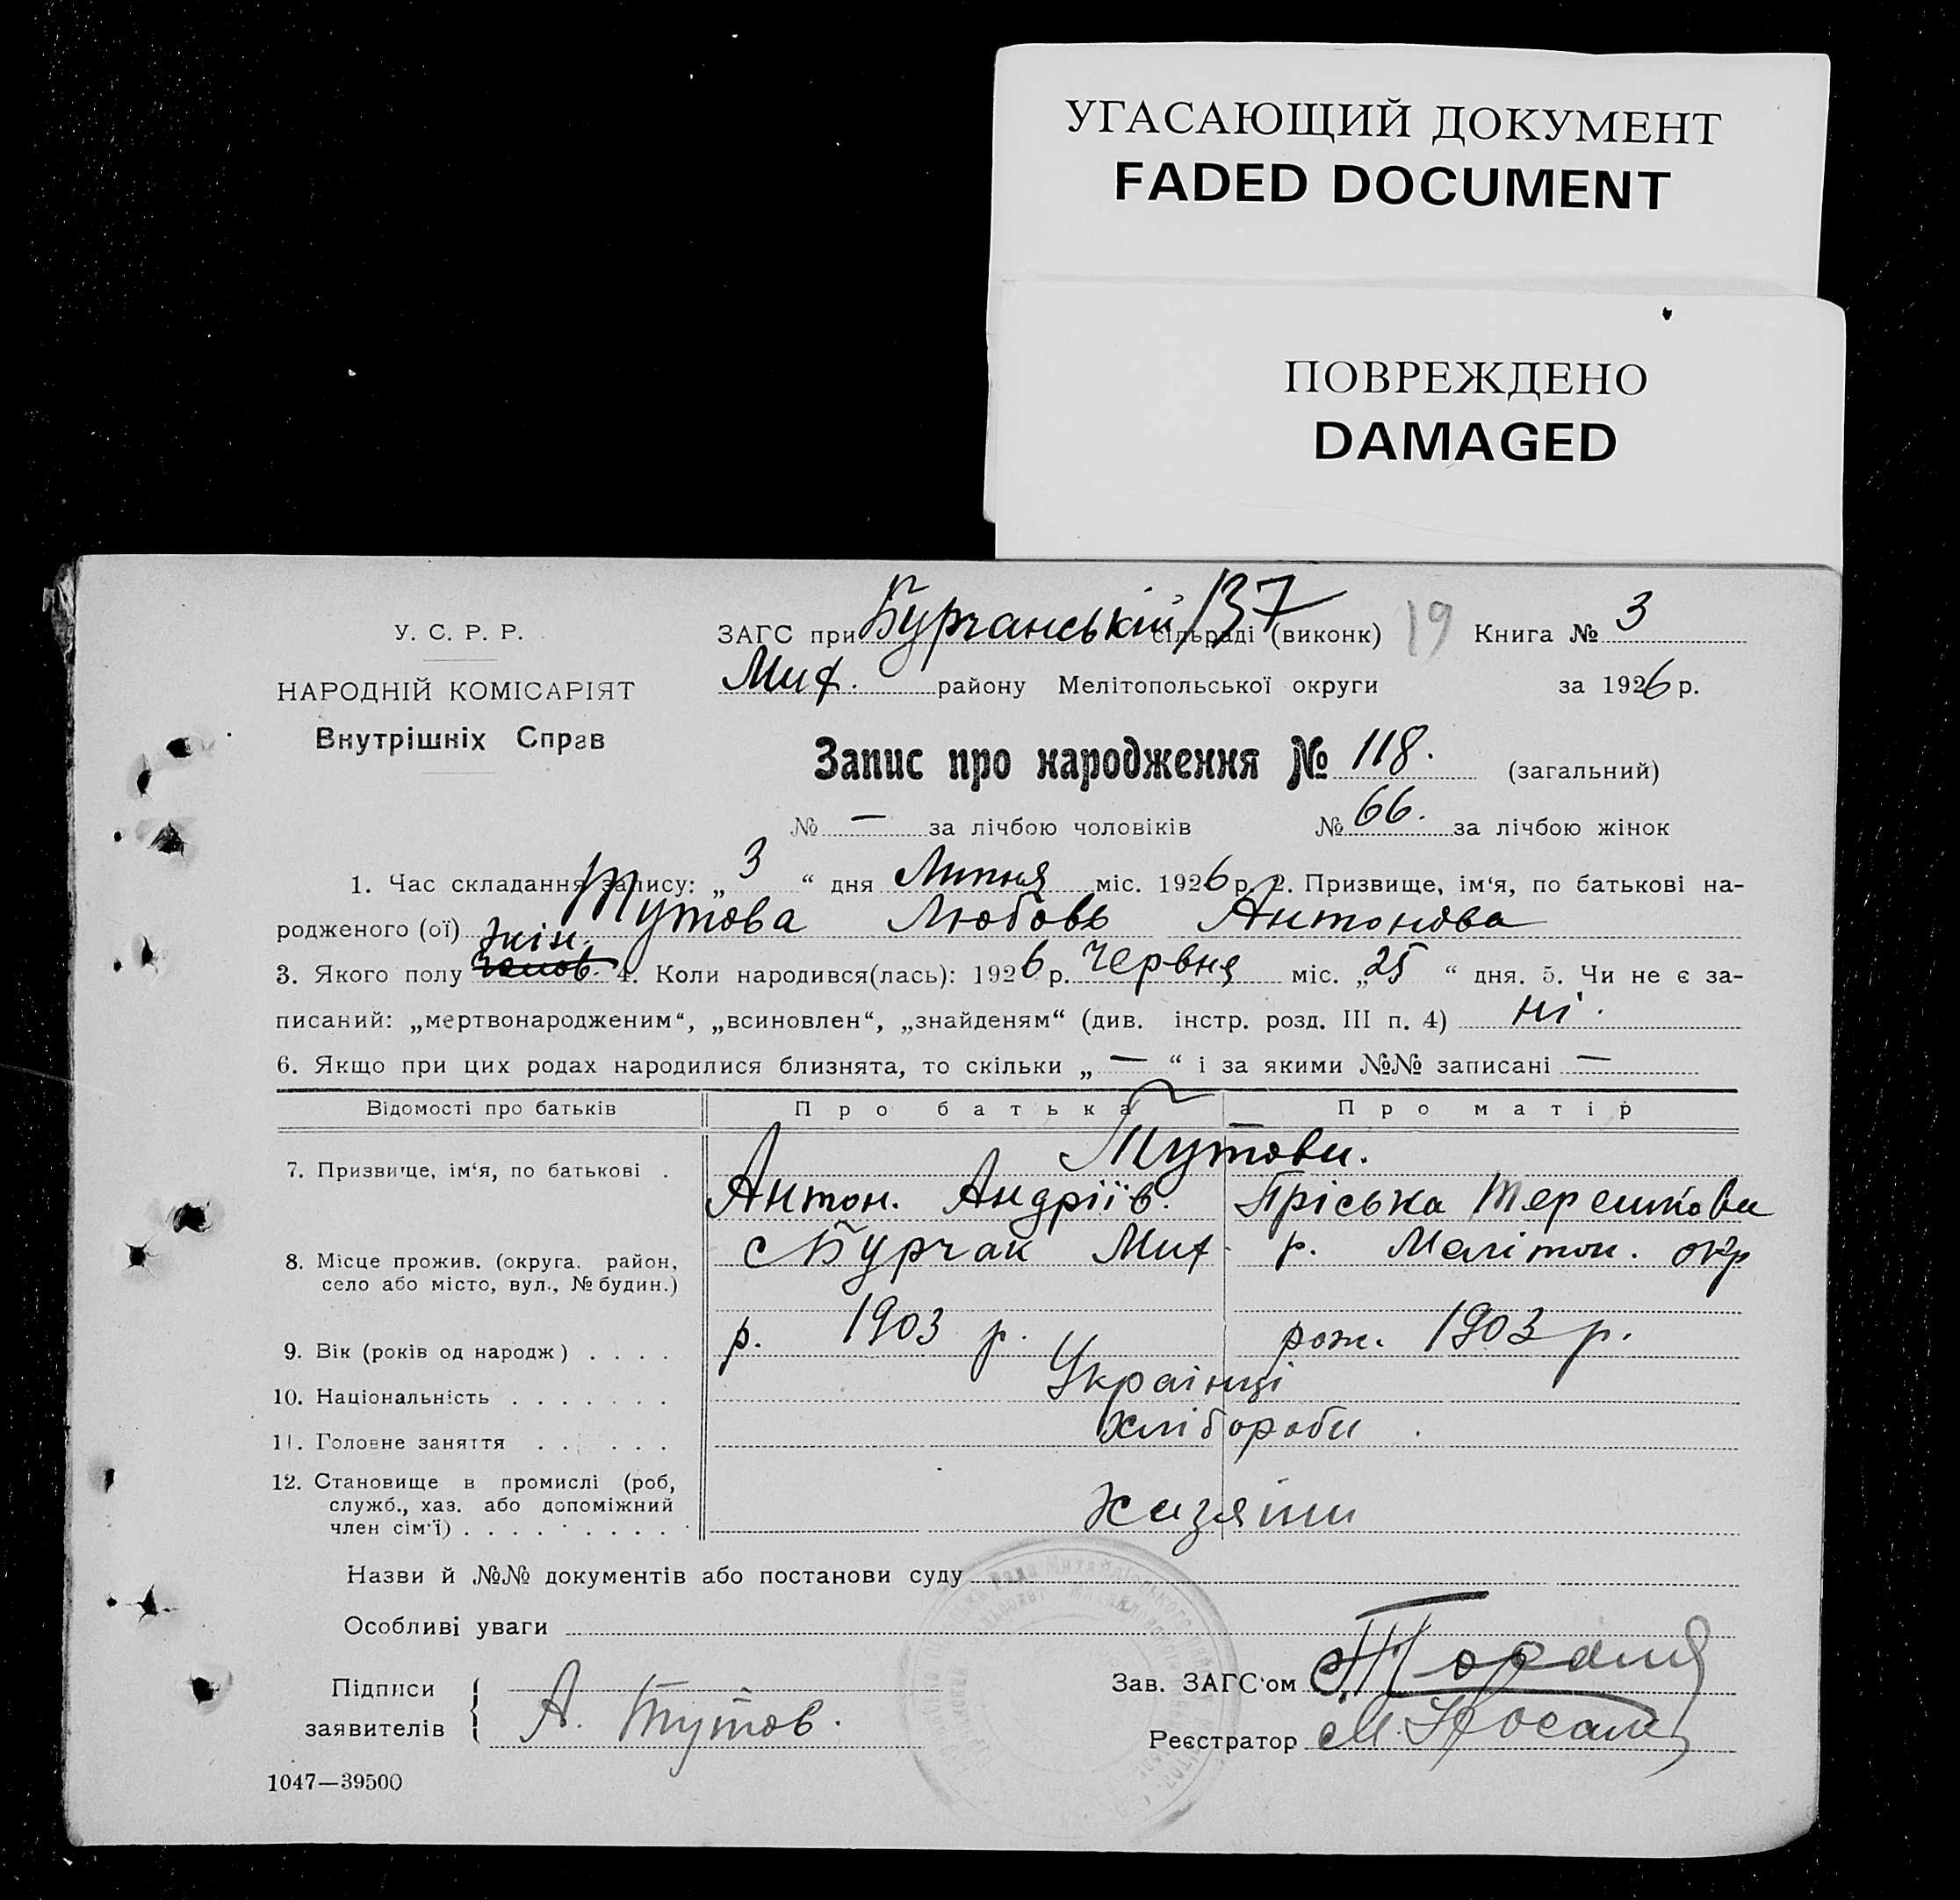 УГАСАЮЩИЙ ДОКУМЕНТ
FADED DOCUMENT
ПОВРЕЖДЕНО
DAMAGED
У. С. Р. Р.
НАРОДНІЙ КОМІСАРІЯТ
Внутрішніх Справ
ЗАГС при Бурчанській сільраді (виконк) 137 19 Книга № 3
Мих. району Мелітопольської округи за 1926 р.
Запис про народження № 118. (загальний)
№ — за лічбою чоловіків № 66. за лічбою жінок
1. Час складання запису: „3“ дня Липня міс. 1926 р. 2. Призвище, ім‘я, по батькові на-
родженого (ої) Тутова Любовь Антонова
жін.
3. Якого полу чолов. 4. Коли народився(лась): 1926 р. Червня міс. „25“ дня. 5. Чи не є за-
писаний: „мертвонародженим“, „всиновлен“, „знайденям“ (див. інстр. розд. III п. 4) ні.
6. Якщо при цих родах народилися близнята, то скільки „—“ і за якими №№ записані —
Відомості про батьків Про батька Про матір
7. Призвище, ім‘я, по батькові . Тутови.
Антон. Андріїв. Пріська Терешкови
8. Місце прожив. (округа. район, с Бурчак Мих. р. Меліточ. окр
село або місто, вул., № будин.)
9. Вік (років од народж) . . . . р. 1903 р. рож. 1903 р.
10. Національність . . . . . . . Українці
11. Головне заняття . . . . . . хлібороби .
12. Становище в промислі (роб,
служб., хаз. або допоміжний
член сім‘ї) . . . . . . . . . . хазяїни
Назви й №№ документів або постанови суду
Особливі уваги
Підписи
заявителів А. Тутов.
Зав. ЗАГС‘ом
Реєстратор М. Носаль
1047—39500